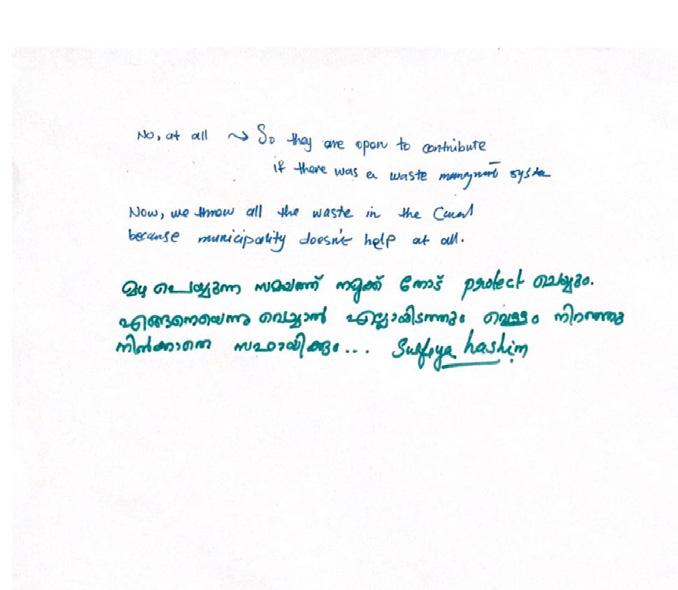 No, at all ~> So they are open to contribute
if there was a waste managment system
Now, we throw all the waste in the Canal
because municipality doesn't help at all.
മഴ പെയ്യുന്ന സമയത്ത് നമുക്ക് റോഡ് protect ചെയ്യും.
എങ്ങനെയെന്നു വെച്ചാൽ എല്ലായിടത്തും വെള്ളം നിറഞ്ഞു
നിൽക്കാതെ സഹായിക്കും... Suffiya hashim